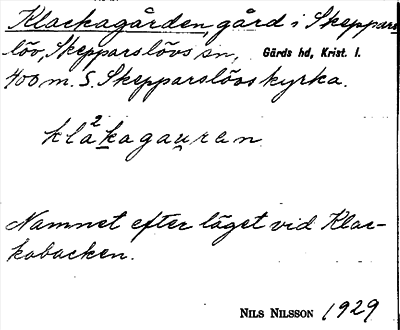 Klackagården, gård i Skeppars-
löv, Skepparslövs sn, Gärds hd, Krist. l.
400 m. S. Skepparslövs kyrka.
kla²kagauran
Namnet efter läget vid Klac-
kabacken.
NILS NILSSON 1929